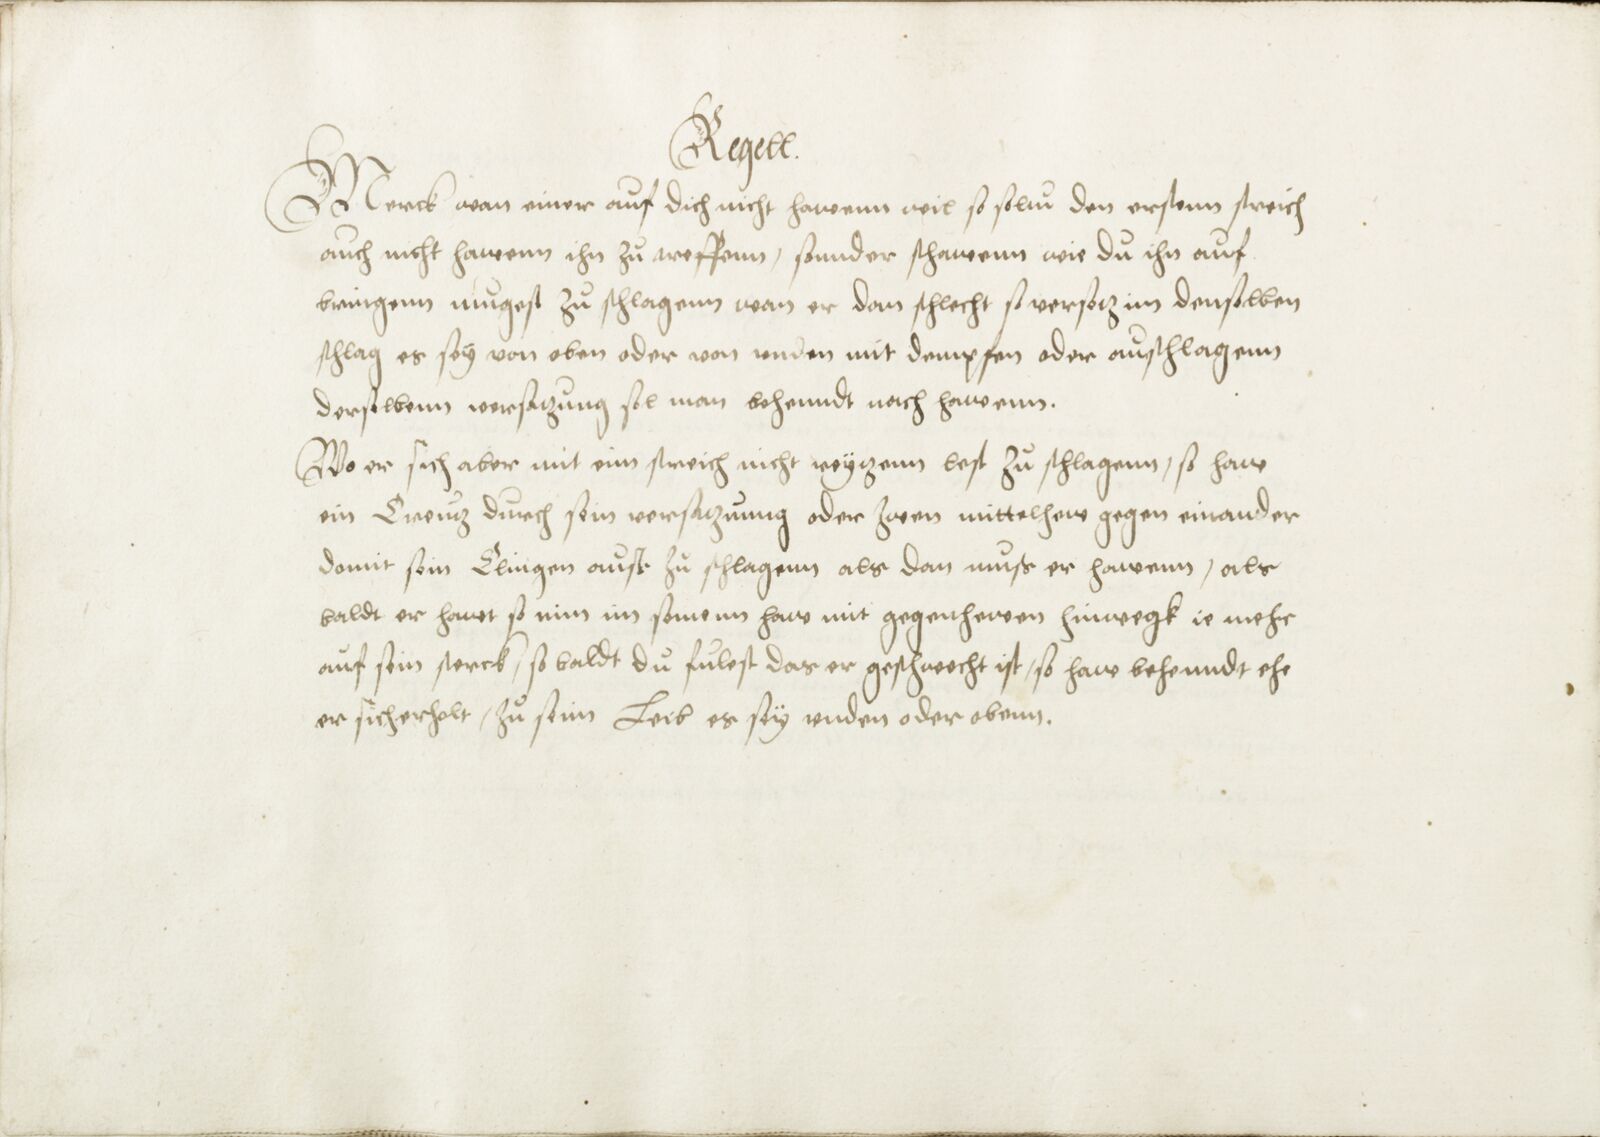 Regell.
Merck wan einer auf dich nicht hawenn wil so soltu den erstenn streich
auch nicht hawenn ihn zu treffenn, sonnder schawenn wie du ihn auf
bringenn mugest zu schlagenn wan er dan schlecht so versetz im denselben
schlag es sey von oben oder von vnden mit dempfen oder auschlagenn
derselbenn versatzung sol man behenndt nach hawenn.
Wo er sich aber mit eim streich nicht reytzenn lest zu schlagenn, so haw
ein Creutz durch sein versatzunng oder zwen mittelhew gegen einander
domit sein Clingen aufs zu schlagenn als dan mufs er hawenn, als
baldt er hawt so nim im seinenn haw mit gegenhewen hinwegk ie mehr
auf sein sterck, so baldt du fulest das er geschwecht ist, so haw behenndt ehe
er sich erholt, zu seim Leib es sey vnden oder obenn.